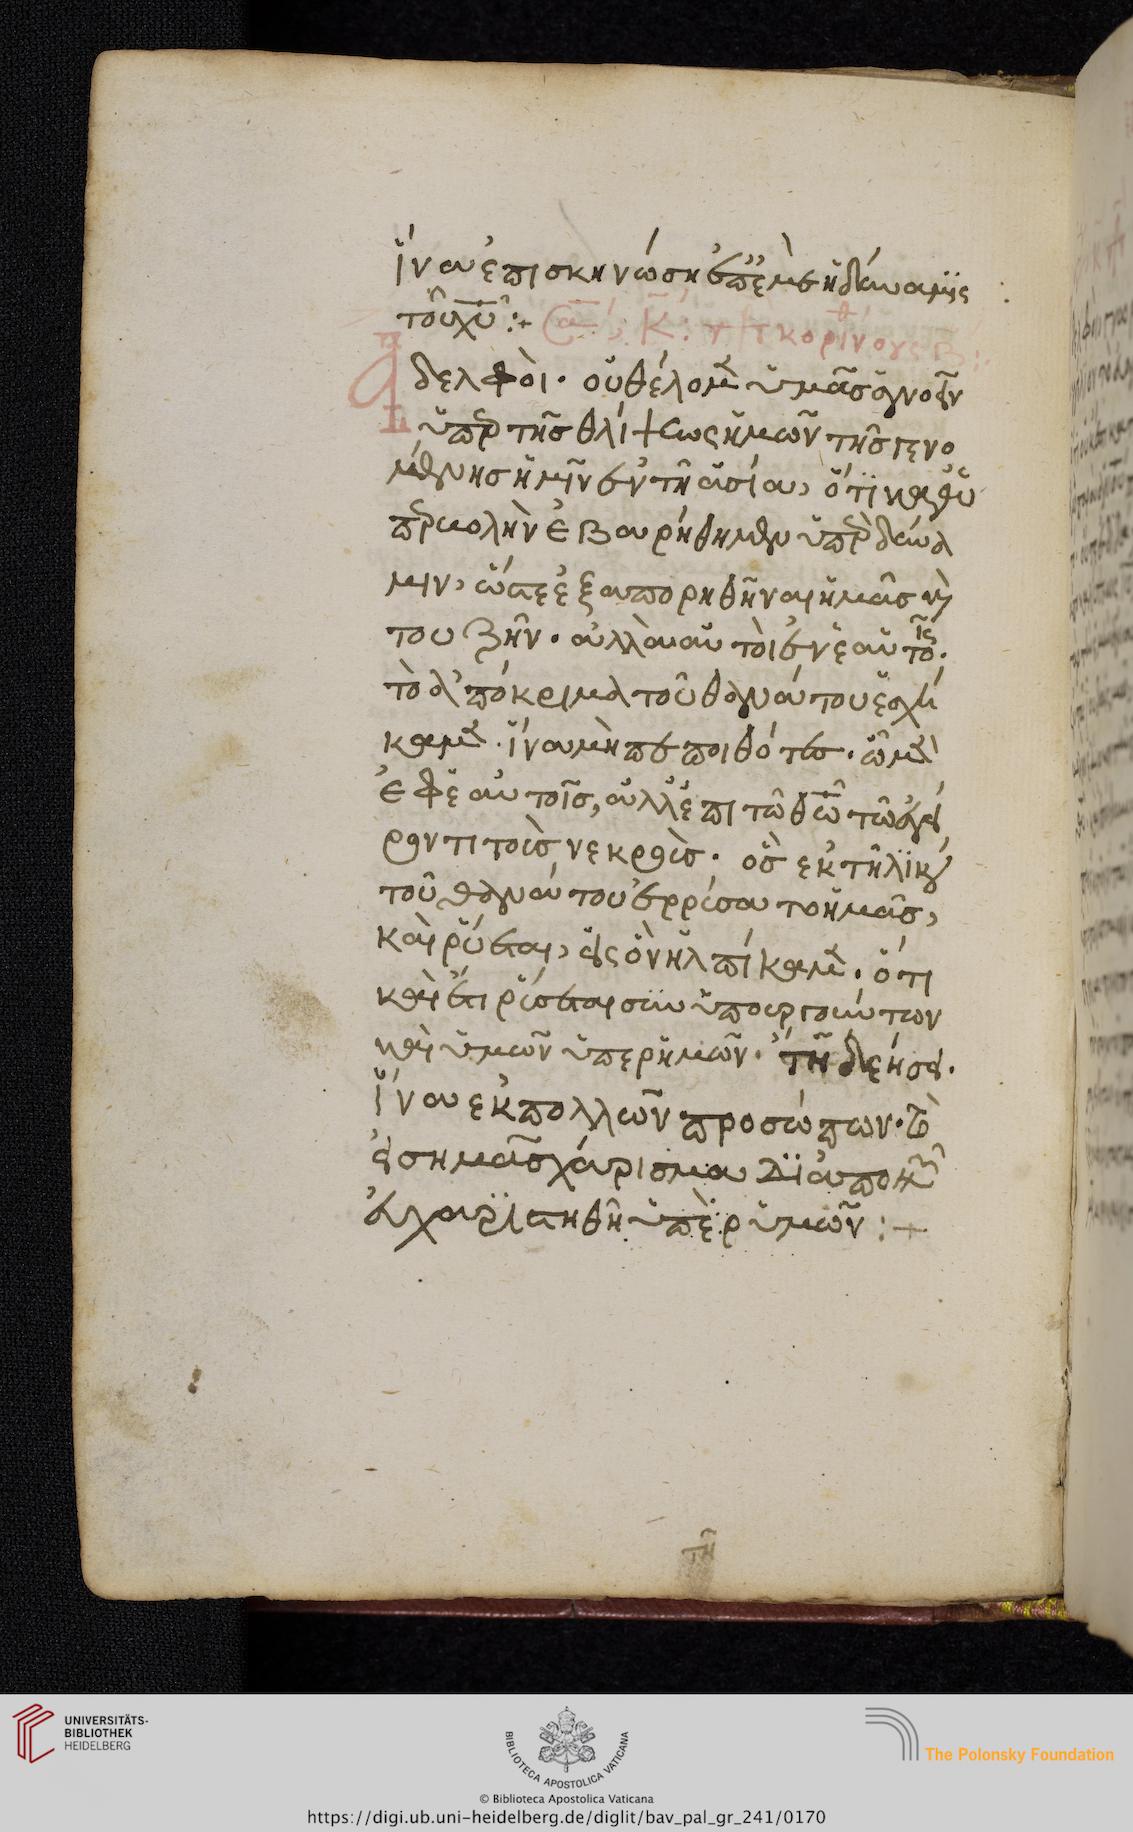 ἵνα ἐπισκηνώση ἐπ ἐμὲ ἡ δύναμις
τοῦ χῦ :+ Σα κ : πρ κορινθους β :
Ἀδελφοὶ · οὐ θέλομεν ὑμᾶς ἀγνοεῖν
ὑπὲρ τῆς θλίψεως ἡμῶν τῆς γενο
μένης ἡμῖν ἐν τῆ ἀσία, ὅτι καθ ὑ
περβολὴν ἐβαρήθημεν ὑπὲρ δύνα
μιν, ὥστε ἐξαπορηθῆναι ἡμᾶς καὶ
του ζῆν · ἀλλὰ αὐτοὶ ἐν ἑαυτοῖς ·
τὸ ἀπόκριμα τοῦ θανάτου ἐσχή
καμεν · ἵνα μὴ πεποιθότες · ὦμεν
ἐφ ἑαυτοῖς, ἀλλ ἐπι τῶ θῶ τῶ ἐγεί
ροντι τοὺς νεκροὺς · ὃς ἐκ τηλικού
τοῦ θανάτου ἐρρύσατο ἡμᾶς,
καὶ ῥύεται, εἰς ὃν ἠλπίκαμεν · ὅτι
καὶ ἔτι ῥύσεται συνυπουργούντων
καὶ ὑμῶν ὑπερ ἡμῶν · τῆ δεήσει ·
ἵνα ἐκ πολλῶν προσώπων · τὸ
εἰς ημᾶς χάρισμα διὰ πολλῶν
εὐχαριστηθῆ ὑπὲρ ὑμῶν :+
τῆ
UNIVERSITÄTS-
BIBLIOTHEK
HEIDELBERG
BIBLIOTECA APOSTOLICA VATICANA
The Polonsky Foundation
© Biblioteca Apostolica Vaticana
https://digi.ub.uni-heidelberg.de/diglit/bav_pal_gr_241/0170